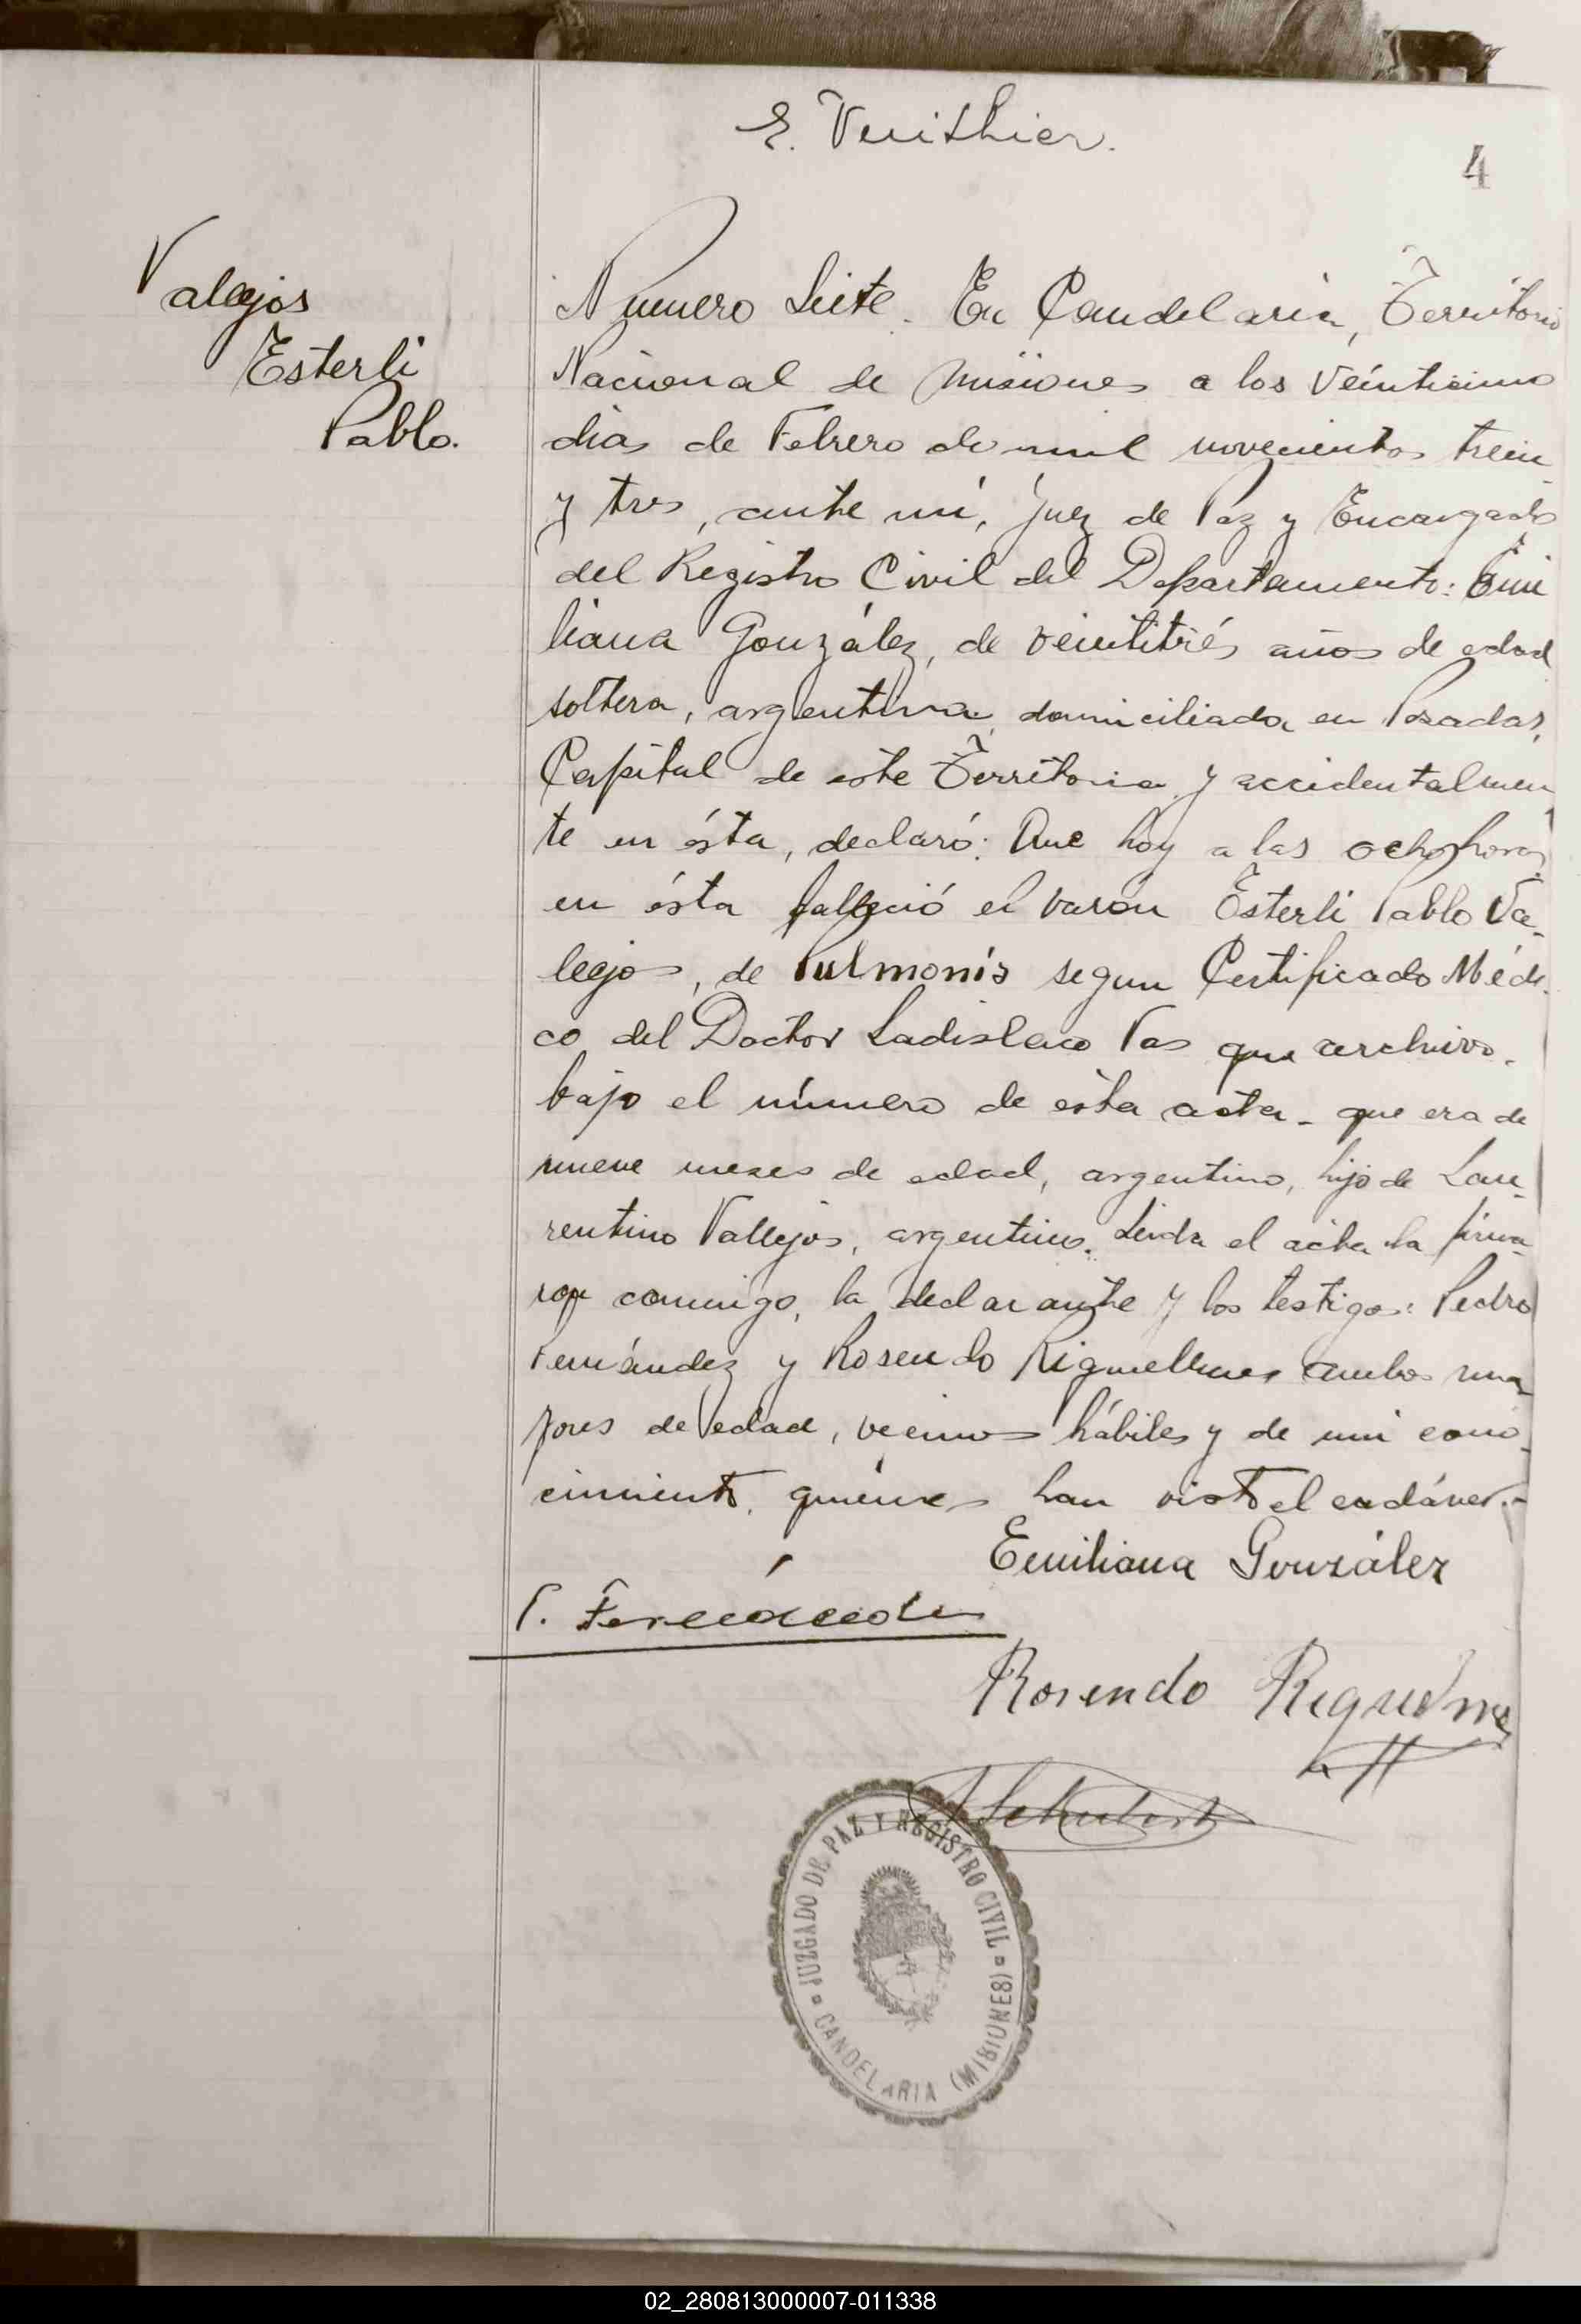 E. Verithier.
4
Valejos
Esterli
Pablo.
Numero Siete. En Candelaria, Territorio
Nacional de Misiones a los Veinticinco
dias de Febrero de mil novecientos trein-
y tres, ante mí, Juez de Paz y Encargado
del Registro Civil del Departamento: Emi
liana González, de veintitrés años de edad
soltera, argentina, domiciliada en Posadas,
Capital de este Territorio y accidentalmen
te en ésta, declaró: Que hoy a las ocho horas
en ésta falleció el varón Esterli Pablo Va-
lejos, de Pulmonía segun Certificado Médi-
co del Doctor Ladislao Vas que archivo.
bajo el número de esta acta - que era de
nueve meses de edad, argentino, hijo de Lau-
rentino Vallejos, argentino. Leida el acta la firma-
ron conmigo, la declarante y los testigos: Pedro
Fernández y Rosendo Riquelmes ambos ma-
yores de edad, vecinos hábiles y de mi cono-
cimiento, quiénes han visto el cadáver.-
Emiliana González
P. Fernández
Rosendo Riquelme
Schubert
JUZGADO DE PAZ Y REGISTRO CIVIL
CANDELARIA (MISIONES)
02_280813000007-011338